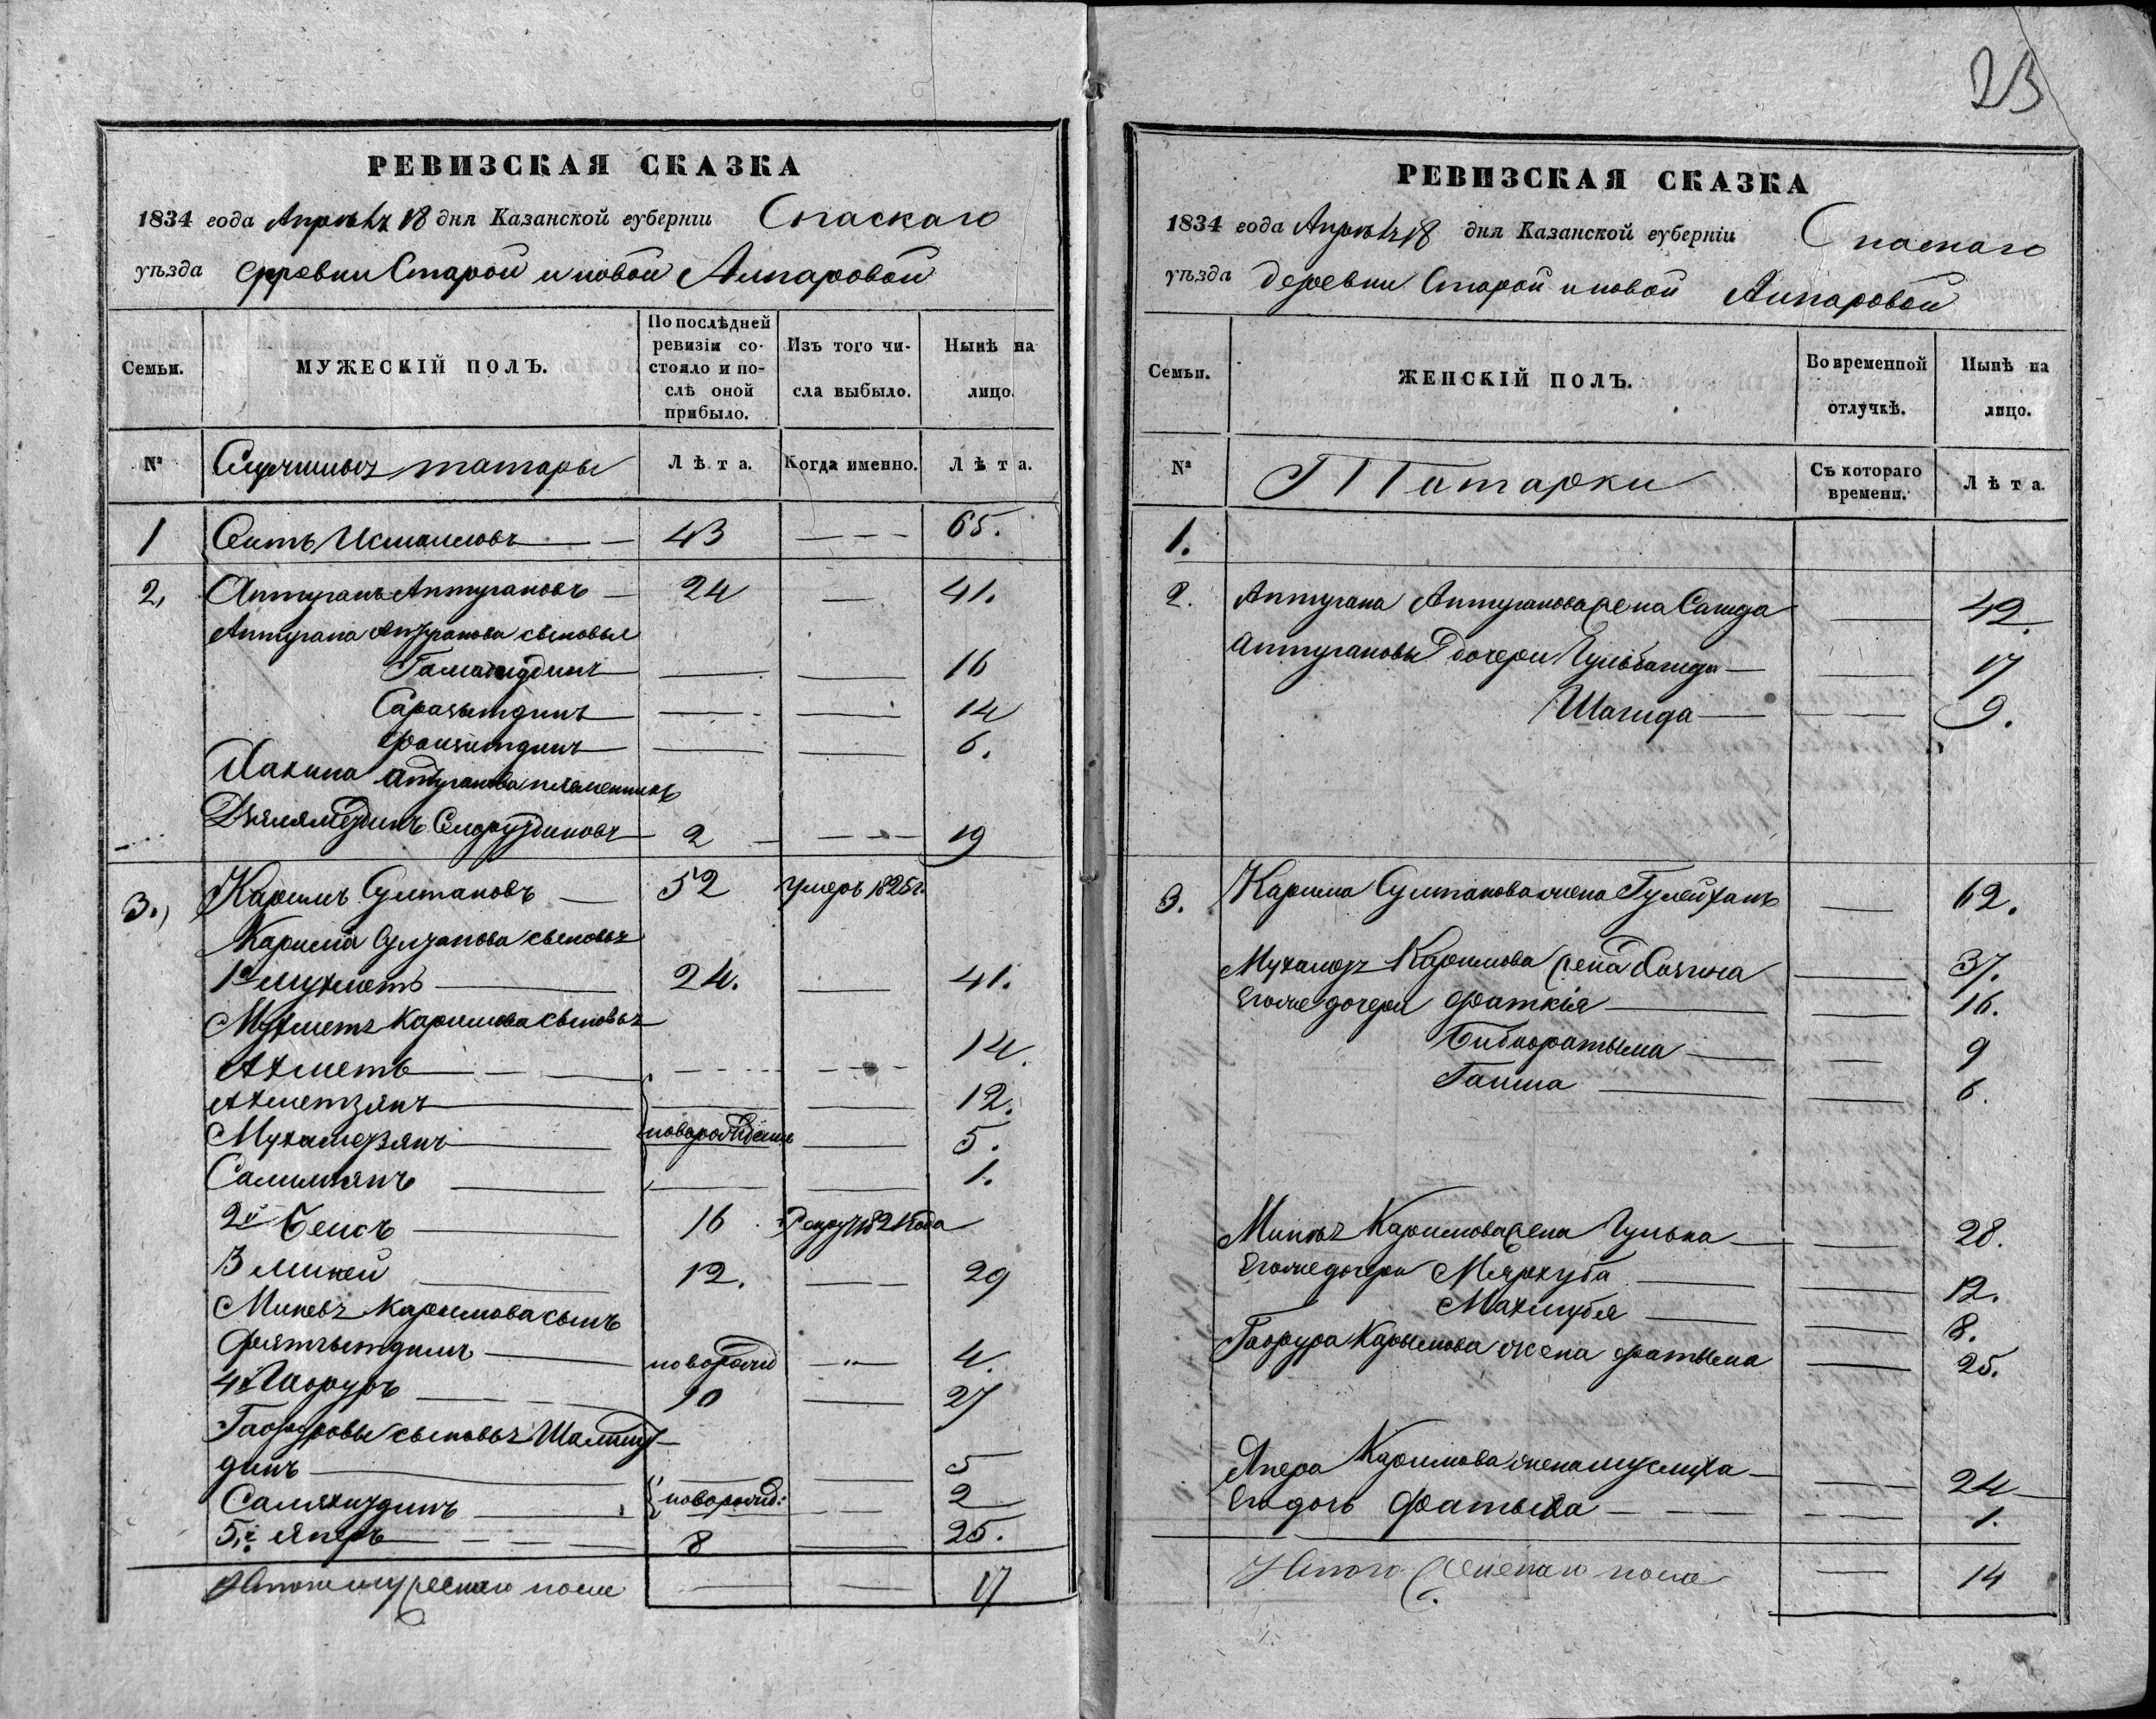 РЕВИЗСКАЯ СКАЗКА
1834 года Апреля 18 дня Казанской губерніи Спаскаго
уѣзда деревни Старой и новой Алпаровой
Семьи. МУЖЕСКІЙ ПОЛЪ. По послѣдней ревизіи состояло и послѣ оной прибыло. Изъ того числа выбыло. Нынѣ на лицо.
№ татары Лѣта. Когда именно. Лѣта.
1 Сеитъ Исмаиловъ 43 65.
2, Аптуганъ Аптугановъ 24 41.
Аптугана Аптуганова сыновья
16
Саразытдинъ 14
Фаизитдинъ 6.
Хакима Аптуганова племенникъ
2 19
3.) Каримъ Султановъ 52 умеръ 1825г.
Карима Султанова сыновья
1й Мухметъ 24. 41.
Мухметя Каримова сыновья
Ахметъ 14.
Ахметзянъ 12.
Мухамедзянъ новорожденъ 5.
Салимзянъ 1.
2й Беисъ 16 1821года
3 Миней 12. 29
Минея Каримова сынъ
новорожд 4.
4й Гафуръ 10 27
Гафуровы сыновья
динъ 5
новорожд: 2
5й Яперъ 8 25.
Итого мужескаго пола 17
23
РЕВИЗСКАЯ СКАЗКА
1834 года Апреля 18 дня Казанской губерніи Спаскаго
уѣзда деревни Старой и новой Алпаровой
Семьи. ЖЕНСКІЙ ПОЛЪ. Во временной отлучкѣ. Нынѣ на лицо.
№ Татарки Съ котораго времени. Лѣта.
1.
2. Аптугана Аптуганова жена Сагида 42.
Аптугановы дочери Гульбагида 17
Шагида 9.
3. Карима Султанова жена Гулейханъ 62.
Мухамедя Каримова жена 37.
Егоже дочери Фаткія 16.
Бибифатыма 9
Гаиша 6.
Минея Каримова жена Гулька 28.
Егоже дочери 12.
Махмубя 8.
Гафура Карымова жена Фатыма 25.
Япера Каримова жена Муслиха 24
Его дочь Фатыха 1.
Итого женскаго пола 14